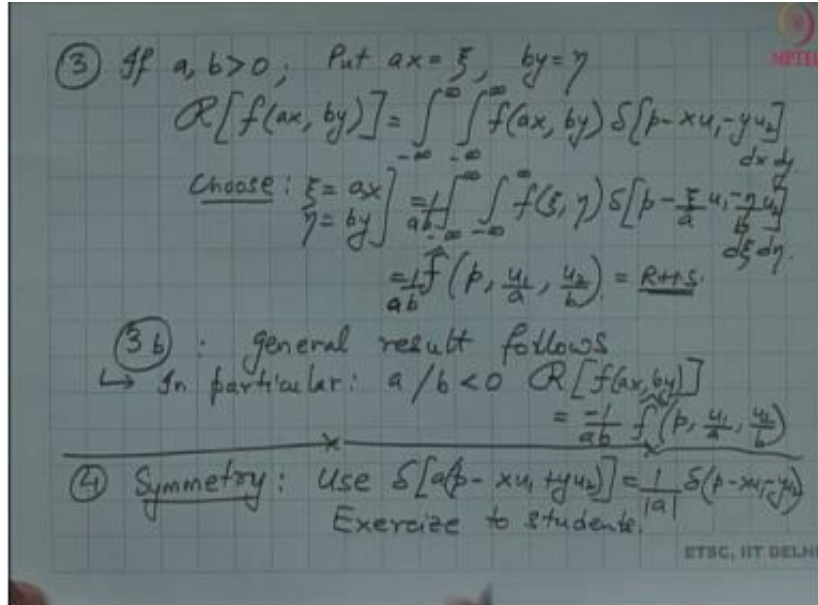 ③ If a, b>0; Put ax = ξ, by = η
NPTEL
R[f(ax, by)] = ∫_{-∞}^{∞} ∫_{-∞}^{∞} f(ax, by) δ[p - xu₁ - yu₂]
dx dy
Choose: ξ = ax
η = by ] = 1/ab ∫_{-∞}^{∞} ∫_{-∞}^{∞} f(ξ, η) δ[p - ξ/a u₁ - η/b u₂]
dξ dη.
= 1/ab f̂(p, u₁/a, u₂/b) = R.H.S.
③b : general result follows
↳ In particular: a/b<0 R[f(ax, by)]
= -1/ab f̂(p, u₁/a, u₂/b)
④ Symmetry: Use δ[a(p - xu₁ + yu₂)] = 1/|a| δ(p - xu₁ - yu₂)
Exercize to students.
ETSC, IIT DELHI